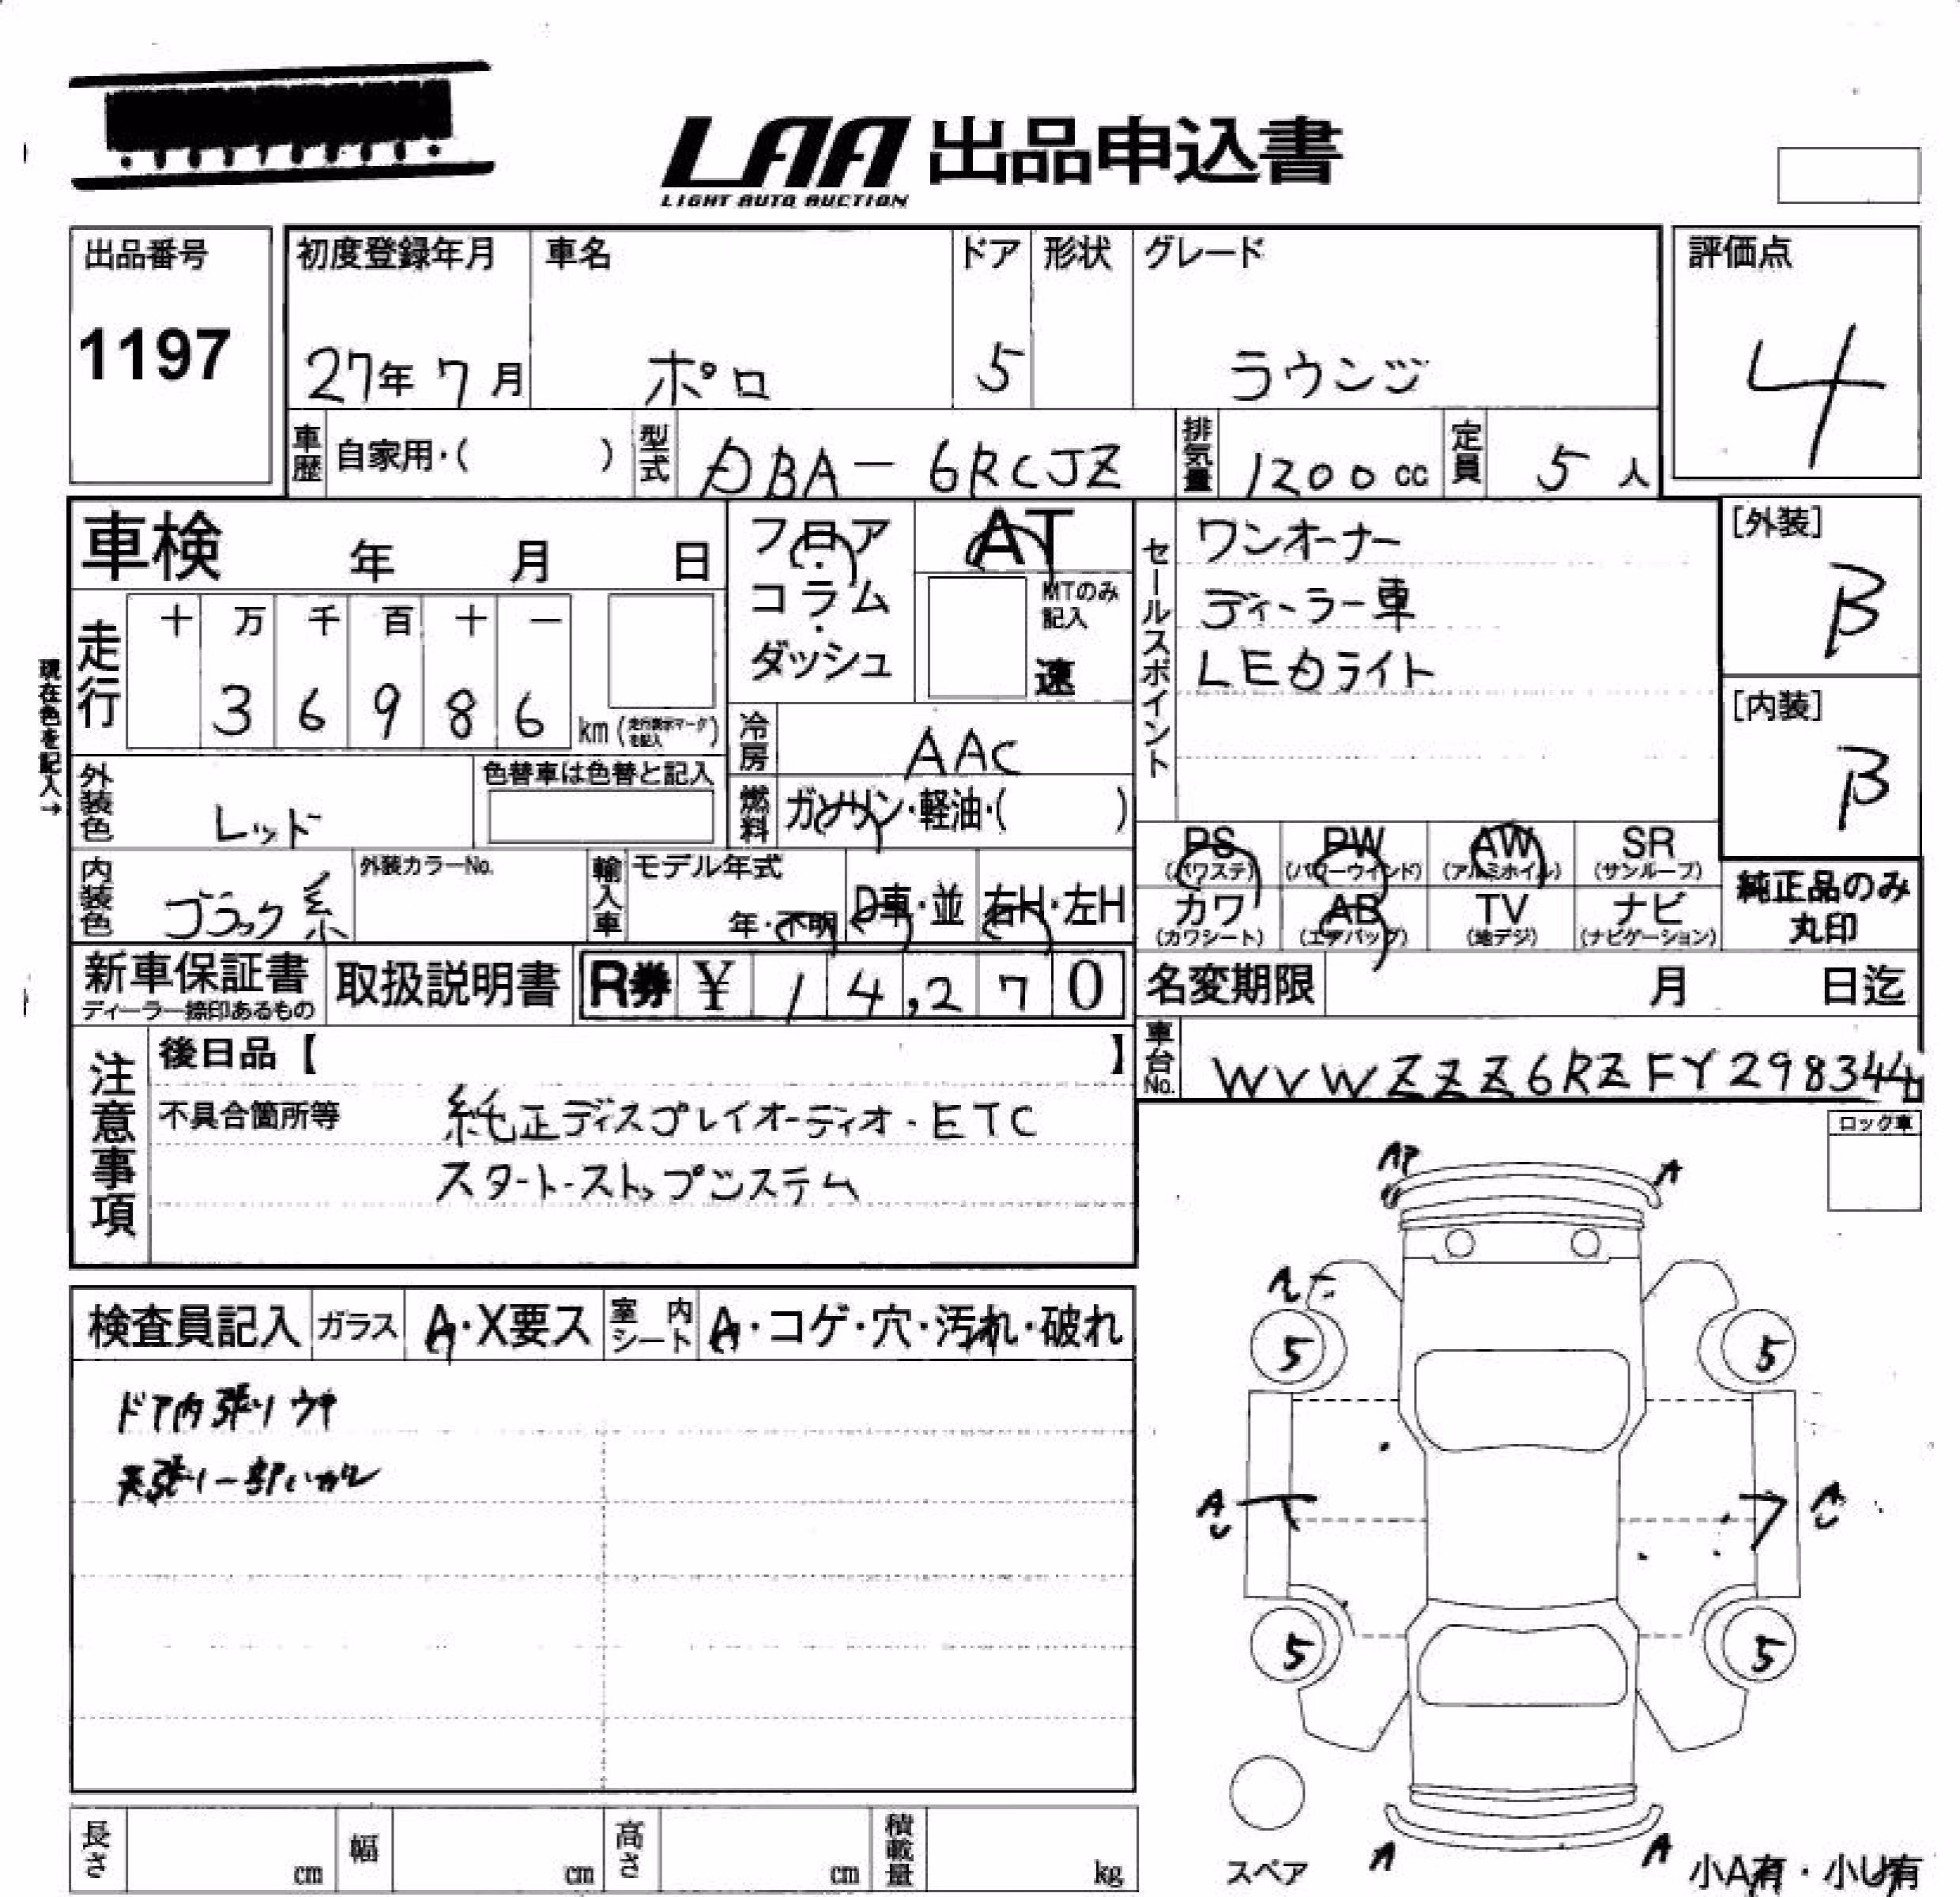 LAA 出品申込書
LIGHT AUTO AUCTION
出品番号
1197
初度登録年月 車名 ドア 形状 グレード
27年 7月 ポロ 5 ラウンジ
評価点
4
車歴 自家用・( ) 型式 DBA-6RCJZ 排気量 1200cc 定員 5人
車検 年 月 日
フロア
コラム
・
ダッシュ
AT
MTのみ
記入
速
現在色を記入→
走行
十 万 千 百 十 一
3 6 9 8 6 km (走行表示マークを記入)
冷房 AAC
燃料 ガソリン・軽油・( )
外装色 レッド
色替車は色替と記入
内装色 ブラック系
外装カラーNo.
輸入車 モデル年式
年・不明 D車・並 右H・左H
新車保証書
ディーラー捺印あるもの
取扱説明書
R券 ¥ 14,270
セールスポイント
ワンオーナー
ディーラー車
LEDライト
[外装]
B
[内装]
B
PS PW AW SR
(パワステ) (パワーウインド) (アルミホイル) (サンルーフ)
カワ AB TV ナビ
(カワシート) (エアバッグ) (地デジ) (ナビゲーション)
純正品のみ
丸印
名変期限 月 日迄
車台No. WVWZZZ6RZFY298344
注意事項
後日品【 】
不具合箇所等 純正ディスプレイオーディオ・ETC
スタート・ストップシステム
ロック車
検査員記入 ガラス A・X要ス 室内シート A・コゲ・穴・汚れ・破れ
ドア内張りウキ
天張り一部ハガレ
A
A
5 5
A A
5 5
スペア
A A
小A有・小U有
長さ cm 幅 cm 高さ cm 積載量 kg